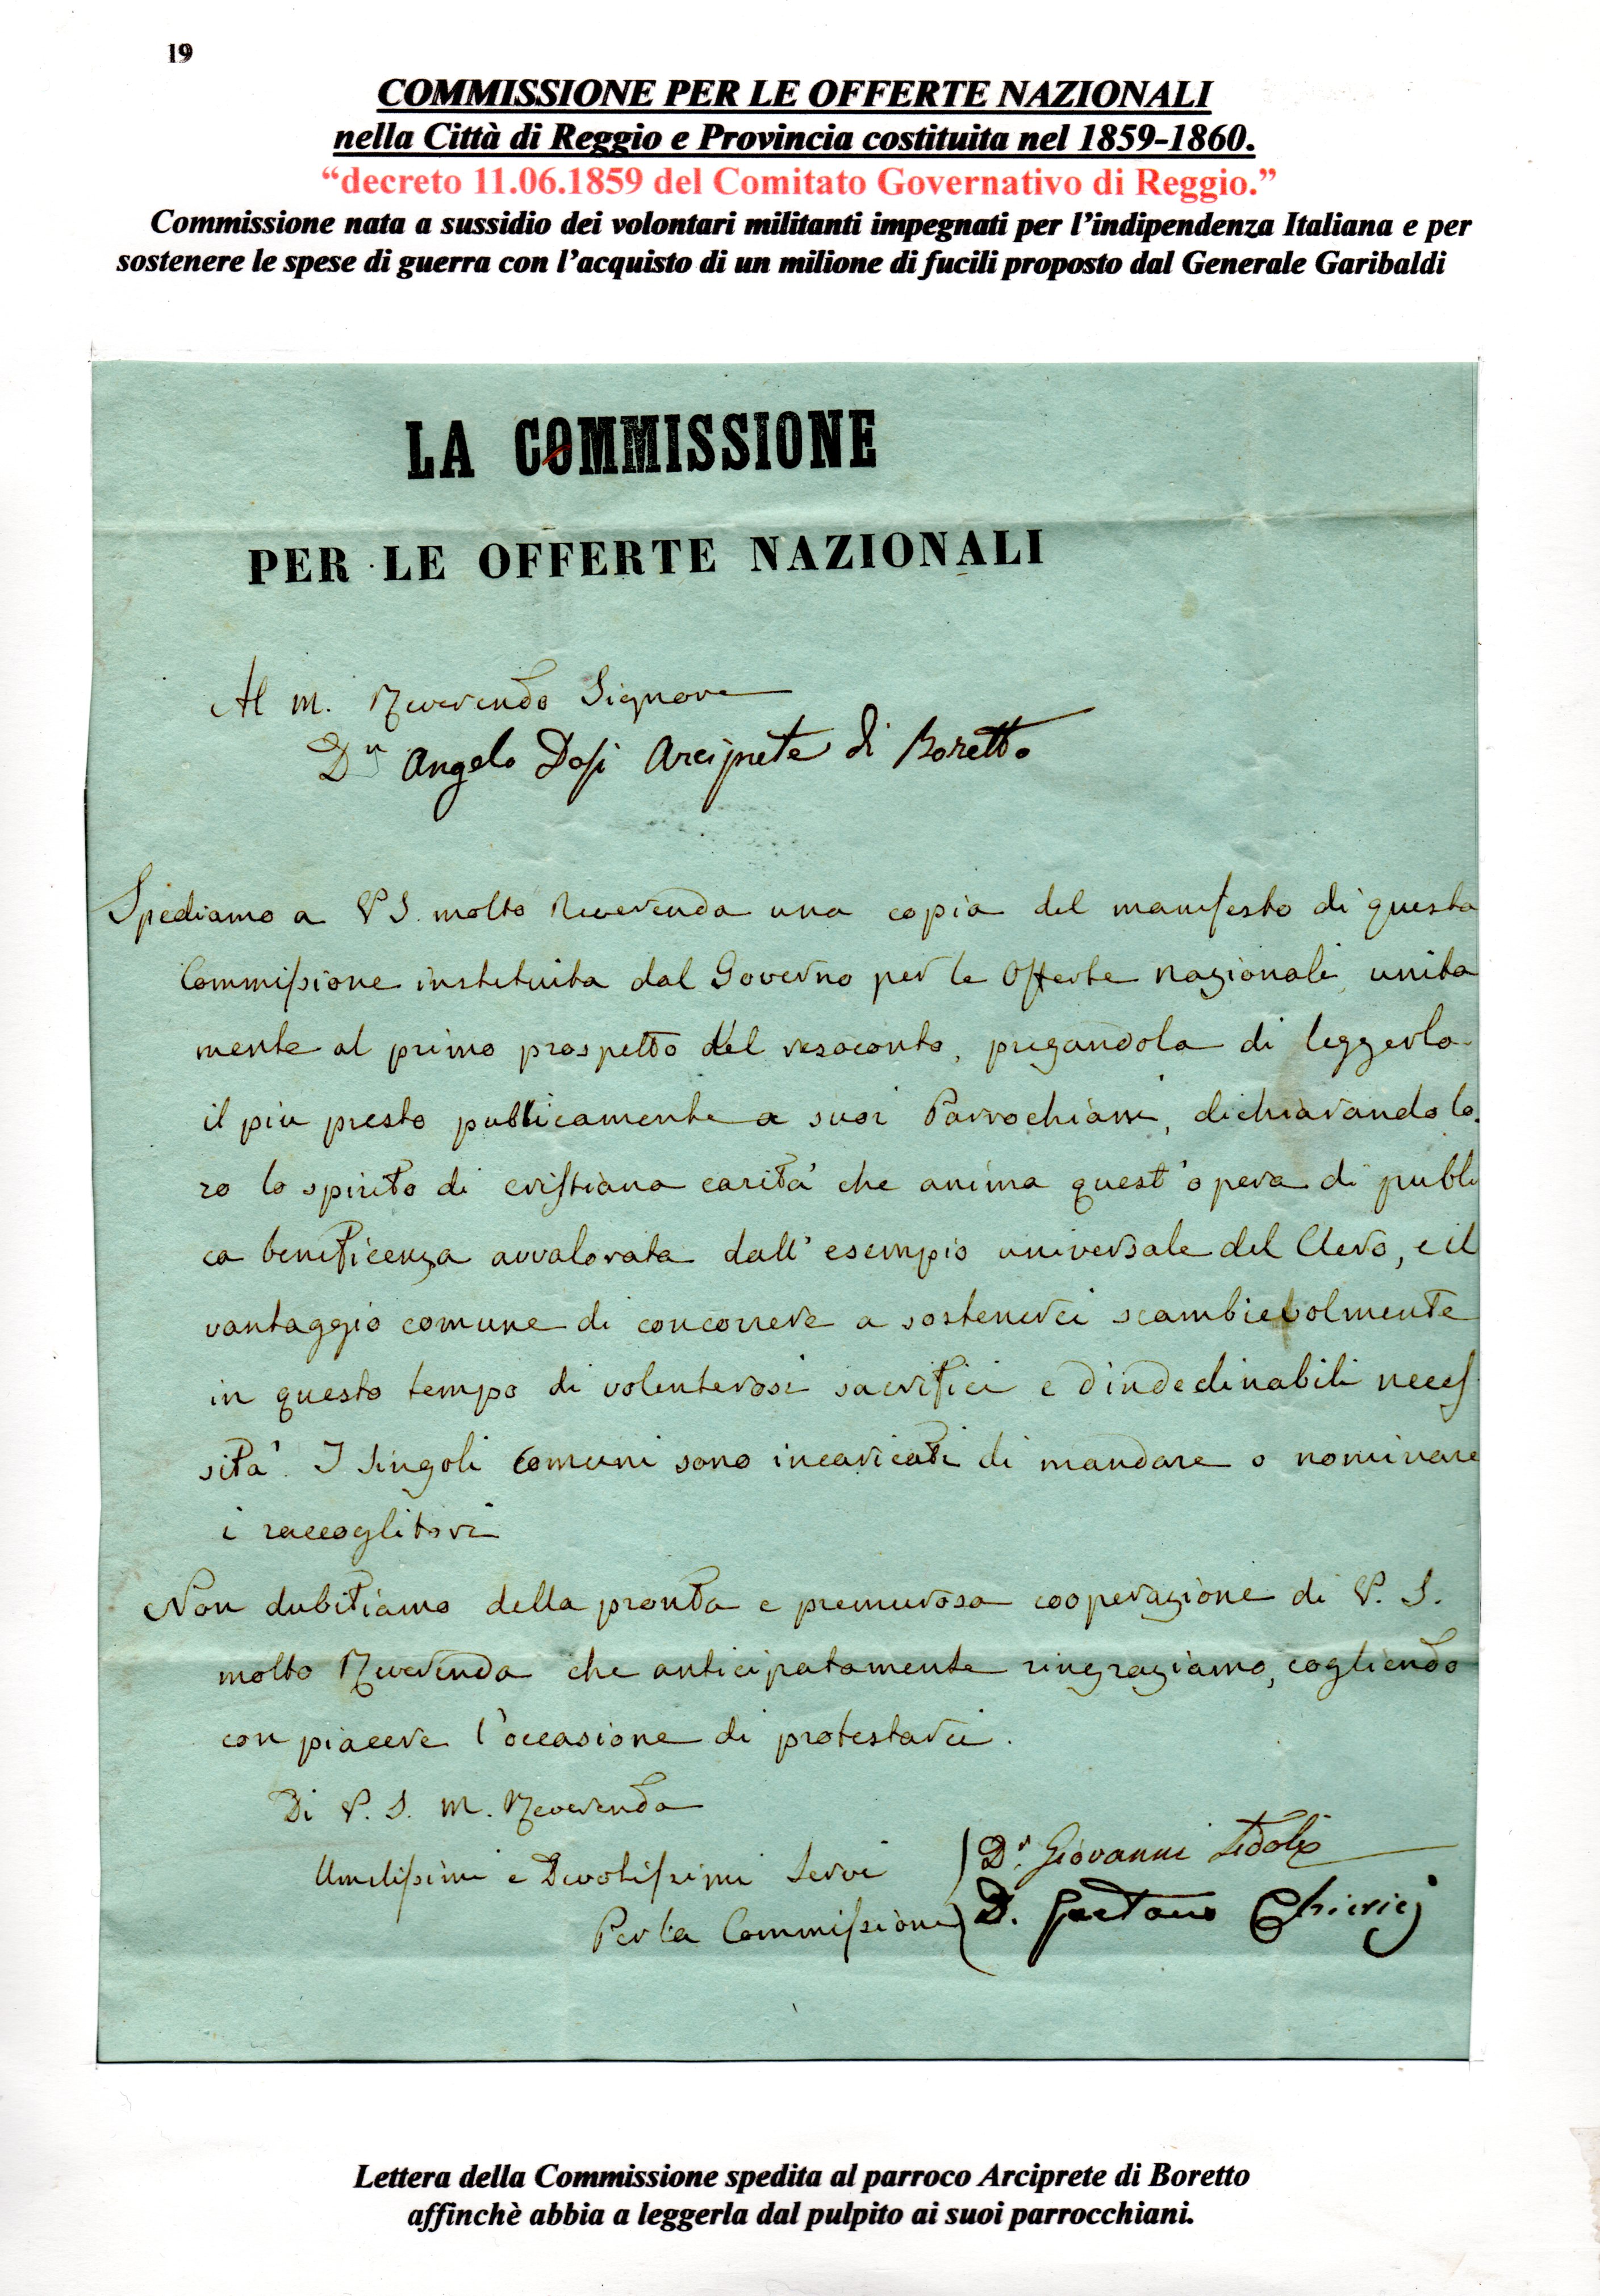 19
COMMISSIONE PER LE OFFERTE NAZIONALI
nella Città di Reggio e Provincia costituita nel 1859-1860.
“decreto 11.06.1859 del Comitato Governativo di Reggio.”
Commissione nata a sussidio dei volontari militanti impegnati per l’indipendenza Italiana e per
sostenere le spese di guerra con l’acquisto di un milione di fucili proposto dal Generale Garibaldi
LA COMMISSIONE
PER LE OFFERTE NAZIONALI
Al M. Reverendo Signore
Dn Angelo Dosi Arciprete di Boretto
Spediamo a V S. molto Reverenda una copia del manifesto di questa
Commissione instituita dal Governo per le Offerte nazionali, unita
mente al primo prospetto del resoconto, pregandola di leggerlo
il più presto pubblicamente a suoi Parrochiani, dichiarando lo
ro lo spirito di cristiana carità che anima quest'opera di pubbli
ca beneficenza avvalorata dall'esempio universale del Clero, e il
vantaggio comune di concorrere a sostenerci scambievolmente
in questo tempo di volenterosi sacrifici e d'indeclinabili neces
sità. I singoli Comuni sono incaricati di mandare o nominare
i raccoglitori
Non dubitiamo della pronta e premurosa cooperazione di V. S.
molto Reverenda che anticipatamente ringraziamo, cogliendo
con piacere l'occasione di protestarci.
Di V. S. M. Reverenda
Umilissimi e Devotissimi Servi
Dr. Giovanni
Per la Commissione
D. Gaetano Chierici
Lettera della Commissione spedita al parroco Arciprete di Boretto
affinchè abbia a leggerla dal pulpito ai suoi parrocchiani.